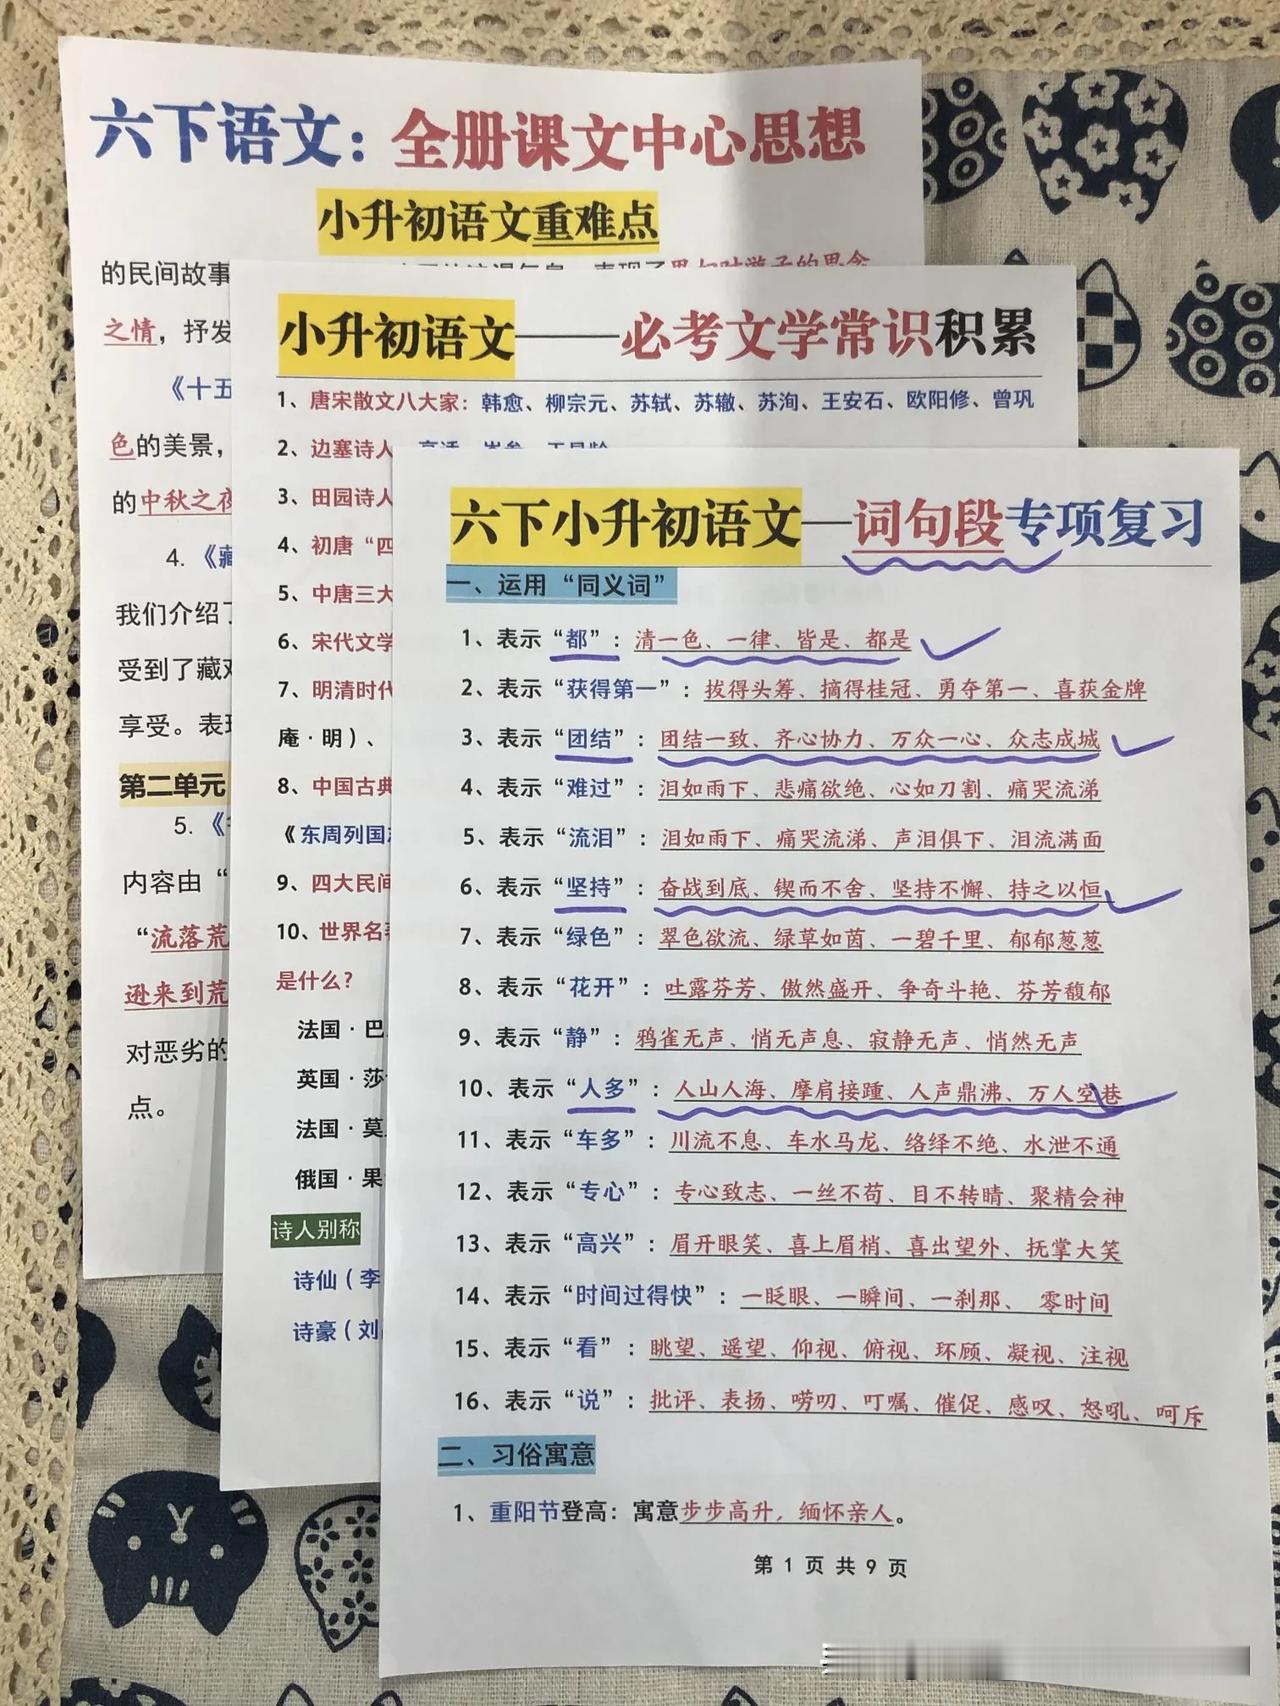 六下语文：全册课文中心思想
小升初语文重难点
的民间故事
之情，抒发
《十五
色的美景，
的中秋之夜
4.《藏
我们介绍了
受到了藏戏
享受。表现
第二单元
5.《
内容由“
“流落荒
逊来到荒
对恶劣的
点。
小升初语文——必考文学常识积累
1、唐宋散文八大家：韩愈、柳宗元、苏轼、苏辙、苏洵、王安石、欧阳修、曾巩
2、边塞诗人
3、田园诗人
4、初唐“四
5、中唐三大
6、宋代文学
7、明清时代
庵·明）、
8、中国古典
《东周列国
9、四大民间
10、世界名著
是什么?
法国·巴
英国·莎
法国·莫
俄国·果
诗人别称
诗仙（李
诗豪（刘
六下小升初语文—词句段专项复习
一、运用“同义词”
1、表示“都”：清一色、一律、皆是、都是
2、表示“获得第一”：拔得头筹、摘得桂冠、勇夺第一、喜获金牌
3、表示“团结”：团结一致、齐心协力、万众一心、众志成城
4、表示“难过”：泪如雨下、悲痛欲绝、心如刀割、痛哭流涕
5、表示“流泪”：泪如雨下、痛哭流涕、声泪俱下、泪流满面
6、表示“坚持”：奋战到底、锲而不舍、坚持不懈、持之以恒
7、表示“绿色”：翠色欲流、绿草如茵、一碧千里、郁郁葱葱
8、表示“花开”：吐露芬芳、傲然盛开、争奇斗艳、芬芳馥郁
9、表示“静”：鸦雀无声、悄无声息、寂静无声、悄然无声
10、表示“人多”：人山人海、摩肩接踵、人声鼎沸、万人空巷
11、表示“车多”：川流不息、车水马龙、络绎不绝、水泄不通
12、表示“专心”：专心致志、一丝不苟、目不转睛、聚精会神
13、表示“高兴”：眉开眼笑、喜上眉梢、喜出望外、抚掌大笑
14、表示“时间过得快”：一眨眼、一瞬间、一刹那、 零时间
15、表示“看”：眺望、遥望、仰视、俯视、环顾、凝视、注视
16、表示“说”：批评、表扬、唠叨、叮嘱、催促、感叹、怒吼、呵斥
二、习俗寓意
1、重阳节登高：寓意步步高升，缅怀亲人。
第 1 页 共 9 页